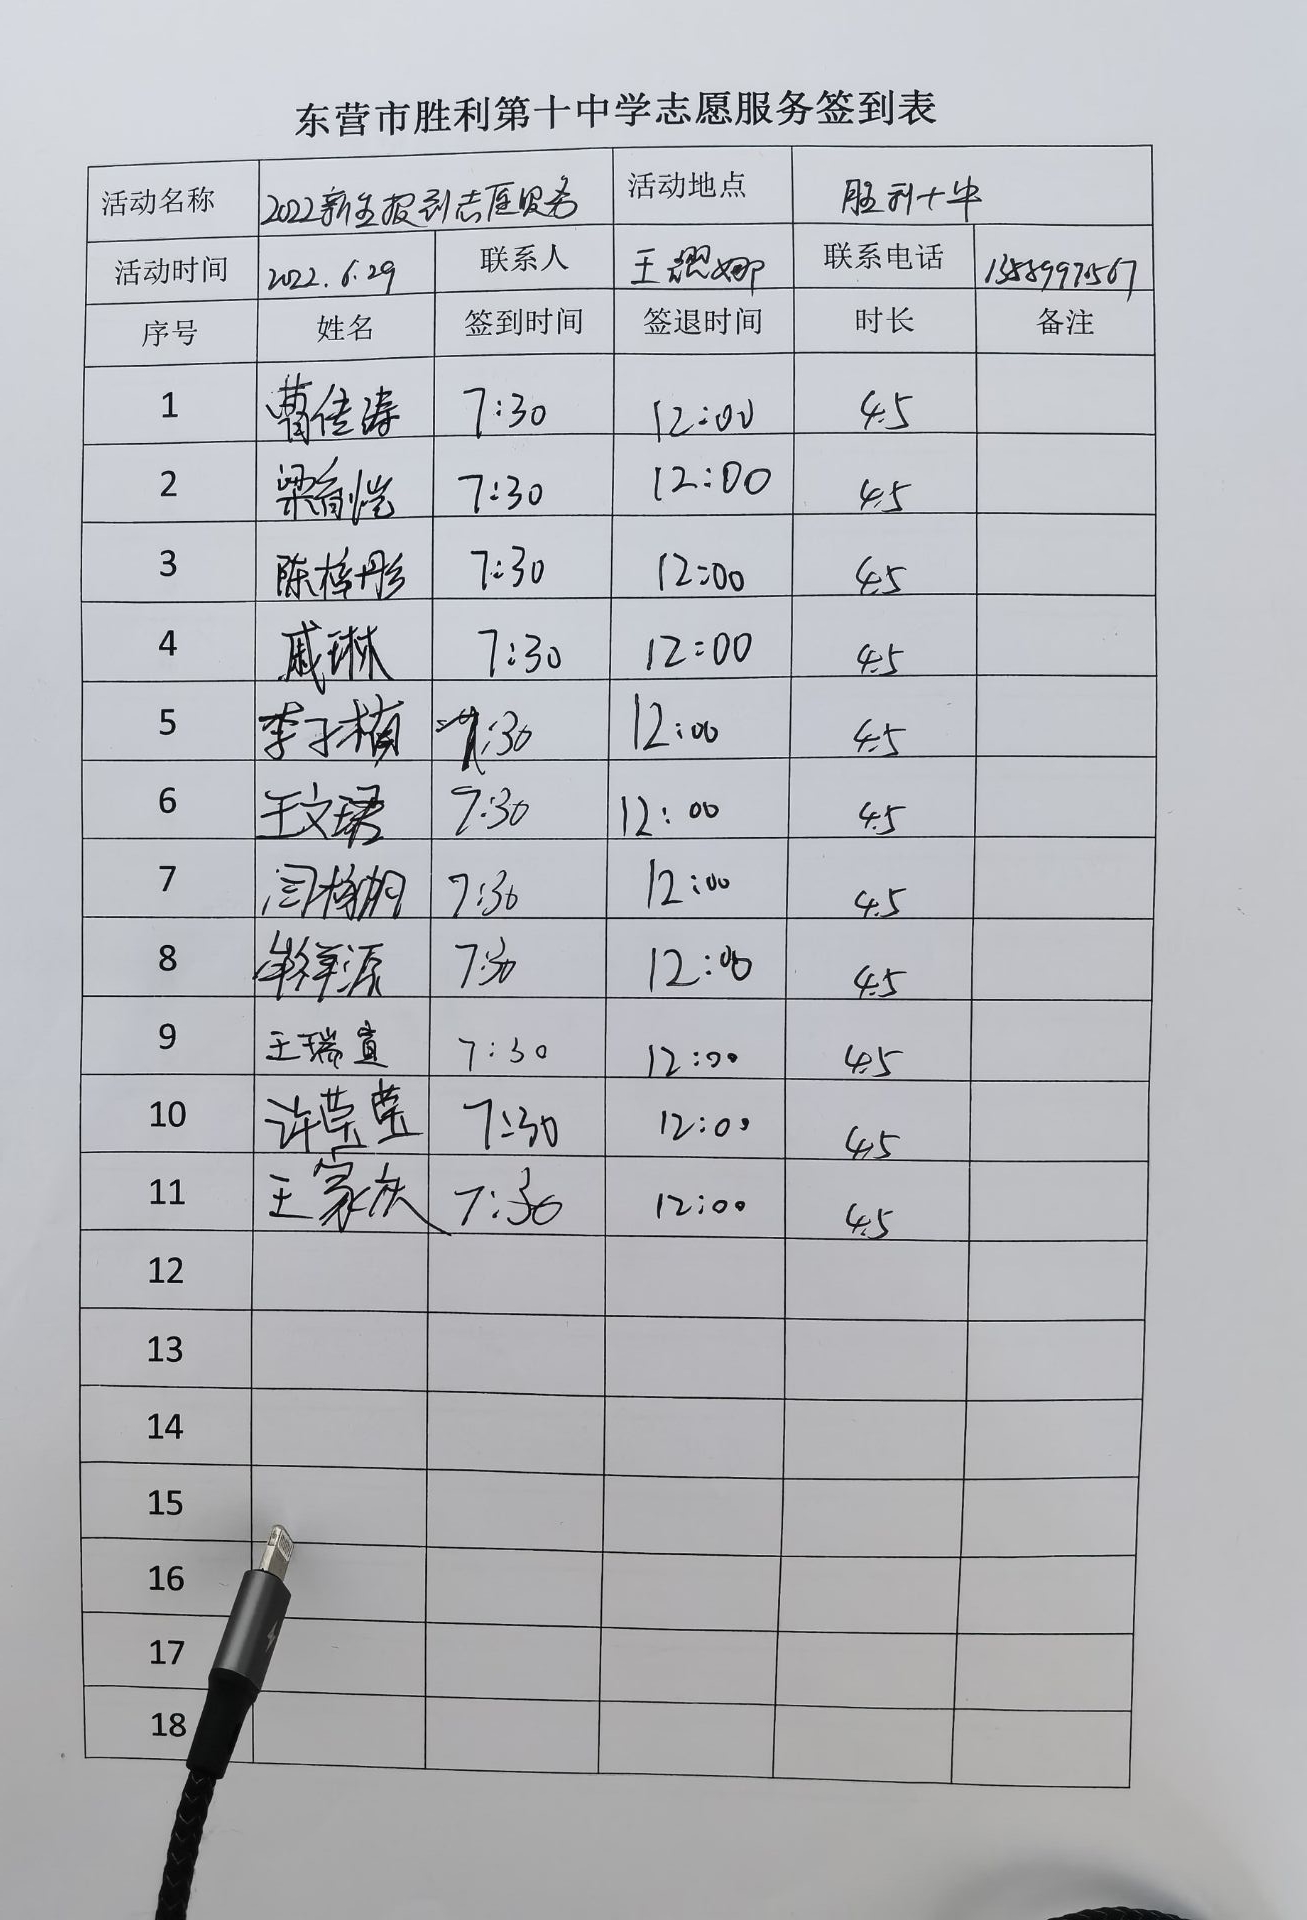 东营市胜利第十中学志愿服务签到表
活动名称 2022新生报到志愿服务 活动地点 胜利十中
活动时间 2022.6.29 联系人 王 娜 联系电话
序号 姓名 签到时间 签退时间 时长 备注
1 曹佳涛 7:30 12:00 4.5
2 梁 恺 7:30 12:00 4.5
3 陈梓彤 7:30 12:00 4.5
4 戚琳 7:30 12:00 4.5
5 李子楠 7:30 12:00 4.5
6 王文珺 7:30 12:00 4.5
7 闫 7:30 12:00 4.5
8 源 7:30 12:00 4.5
9 王瑞宣 7:30 12:00 4.5
10 许荣 7:30 12:00 4.5
11 王家庆 7:30 12:00 4.5
12
13
14
15
16
17
18